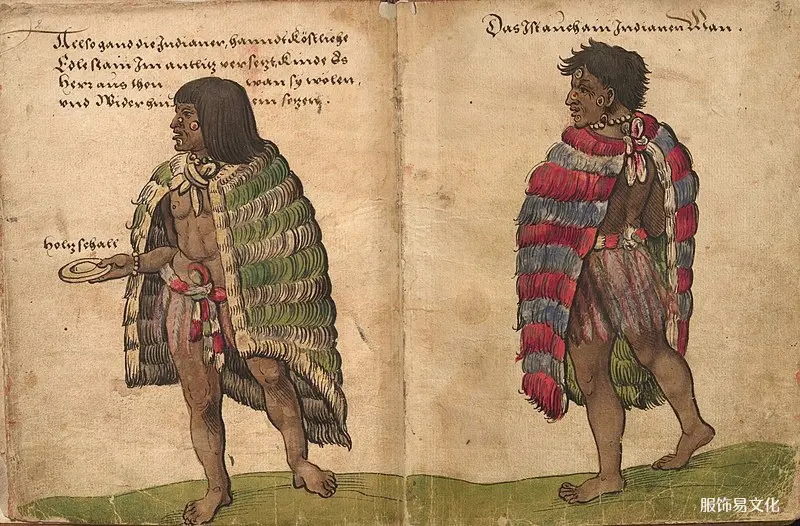 Also gand die Indianer, hanndt köstliche
Edlestain Im antlitz versetzt, kinde Es
Heraus thon wan sy wolen,
vnd Wider hin ein setzen.
holtz schall
Das Ist auch ain Indianen Man.
3.
服饰易文化